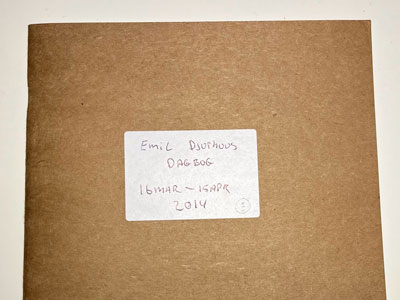 Emil Djuphuus
DAGBOG
16 MAR - 15 APR
2014